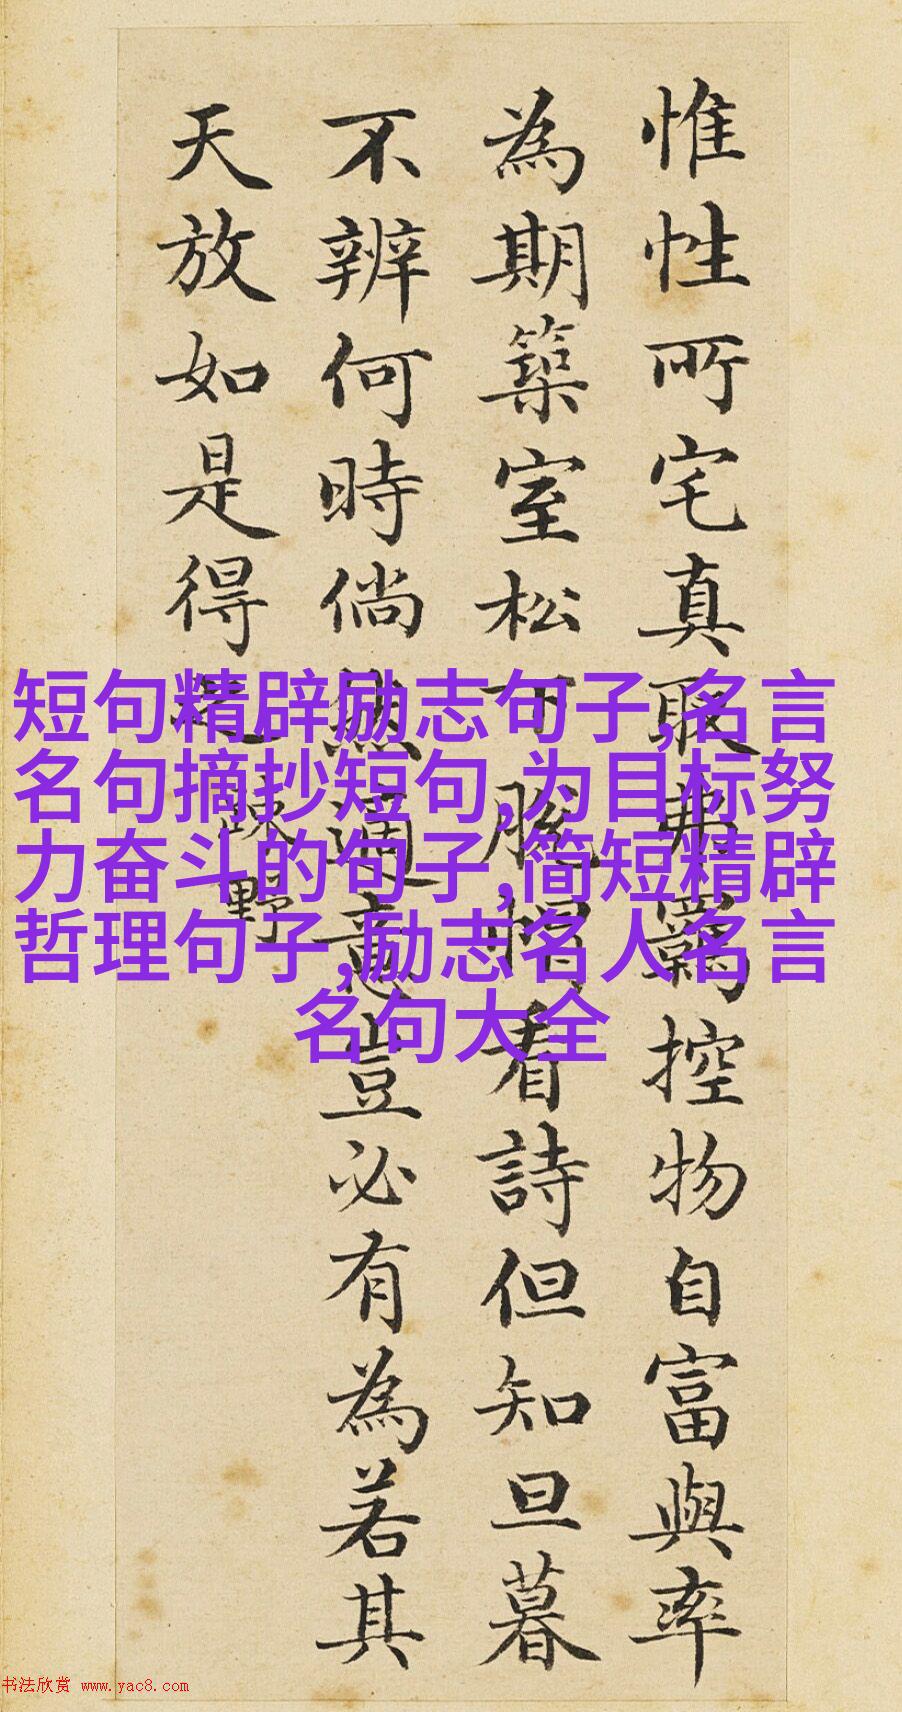 惟性所宅真取弗羈控物自富與率
為期築室松下脫帽看詩但知旦暮
不辨何時倘然適意豈必有為若其
天放如是得之疎野
短句精辟励志句子,名言
名句摘抄短句,为目标努
力奋斗的句子,简短精辟
哲理句子,励志名人名言
名句大全
书法欣赏 www.yac8.com